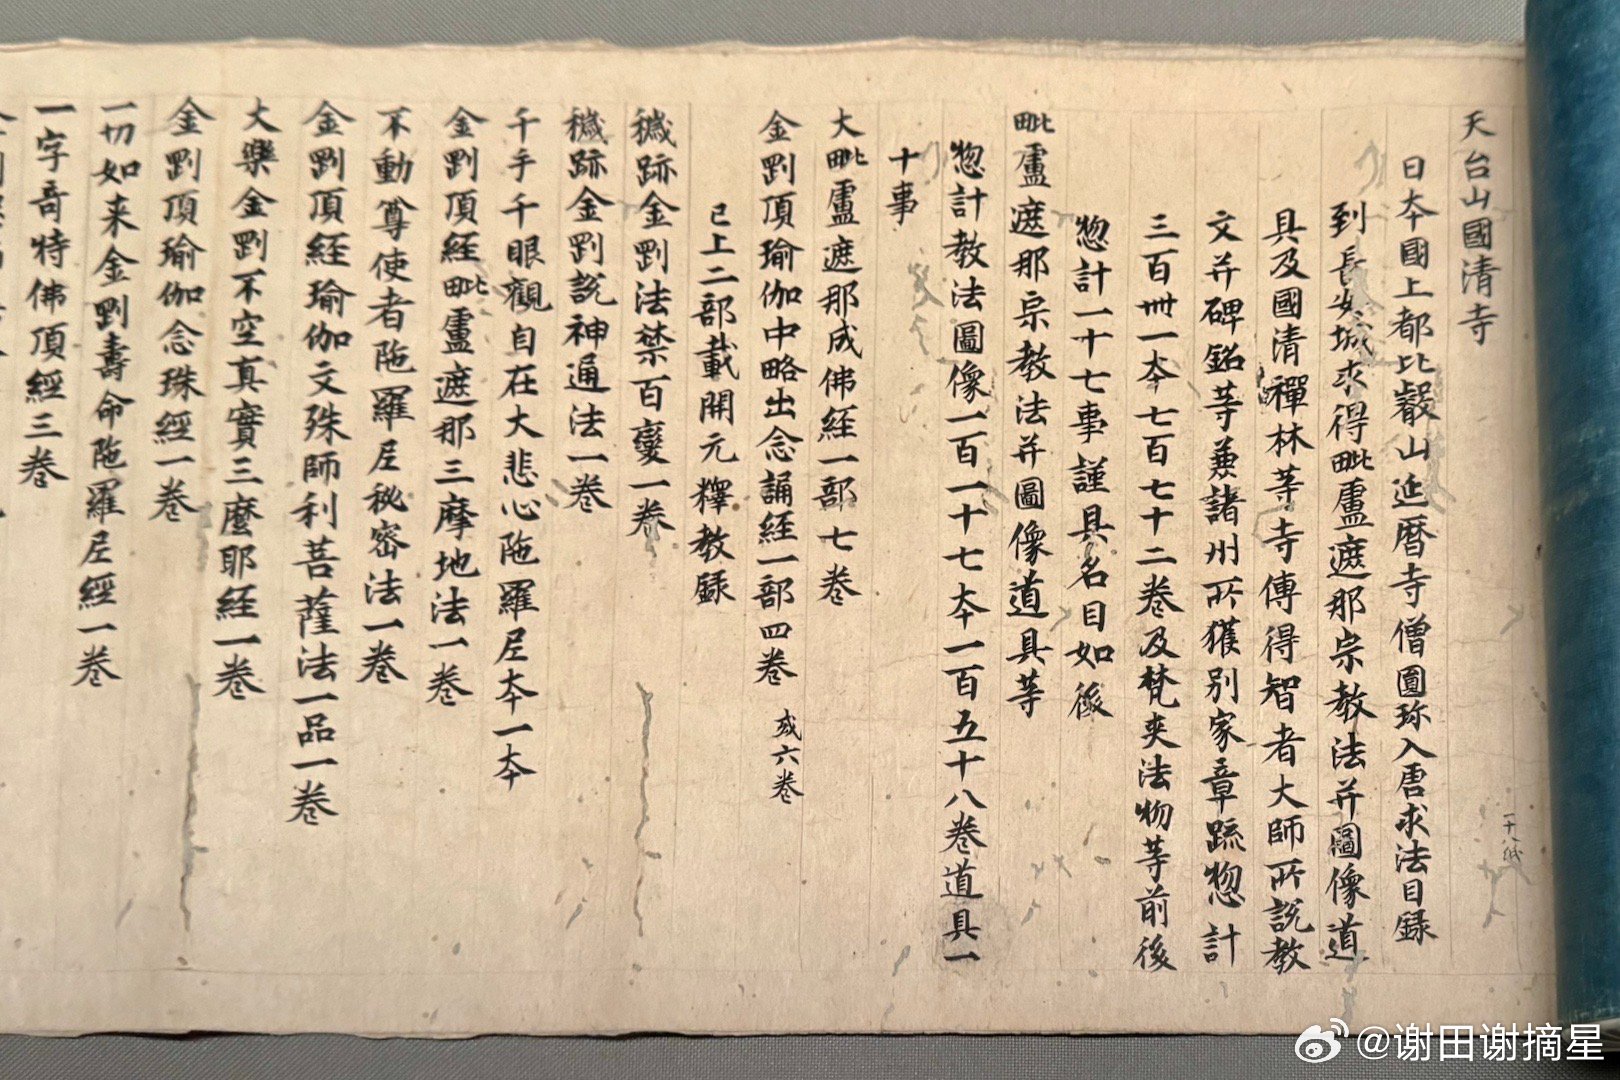 天台山國清寺
日本國上都比叡山延曆寺僧圓珎入唐求法目録
到長安城求得毗盧遮那宗教法并圖像道
具及國清禪林等寺傳得智者大師所説教
文并碑銘等兼諸州所獲别家章疏惣計
三百卌一本七百七十二卷及梵夾法物等前後
惣計一十七事謹具名目如後
毗盧遮那宗教法并圖像道具等
惣計教法圖像一百一十七本一百五十八卷道具一
十事
大毗盧遮那成佛經一部七卷
金剛頂瑜伽中略出念誦經一部四卷 或六卷
已上二部載開元釋教録
穢跡金剛法禁百變一卷
穢跡金剛説神通法一卷
千手千眼觀自在大悲心陁羅尼本一本
金剛頂經毗盧遮那三摩地法一卷
不動尊使者陁羅尼秘密法一卷
金剛頂經瑜伽文殊師利菩薩法一品一卷
大樂金剛不空真實三麼耶經一卷
金剛頂瑜伽念珠經一卷
一切如来金剛壽命陁羅尼經一卷
一字奇特佛頂經三卷
一十八紙
@谢田谢摘星